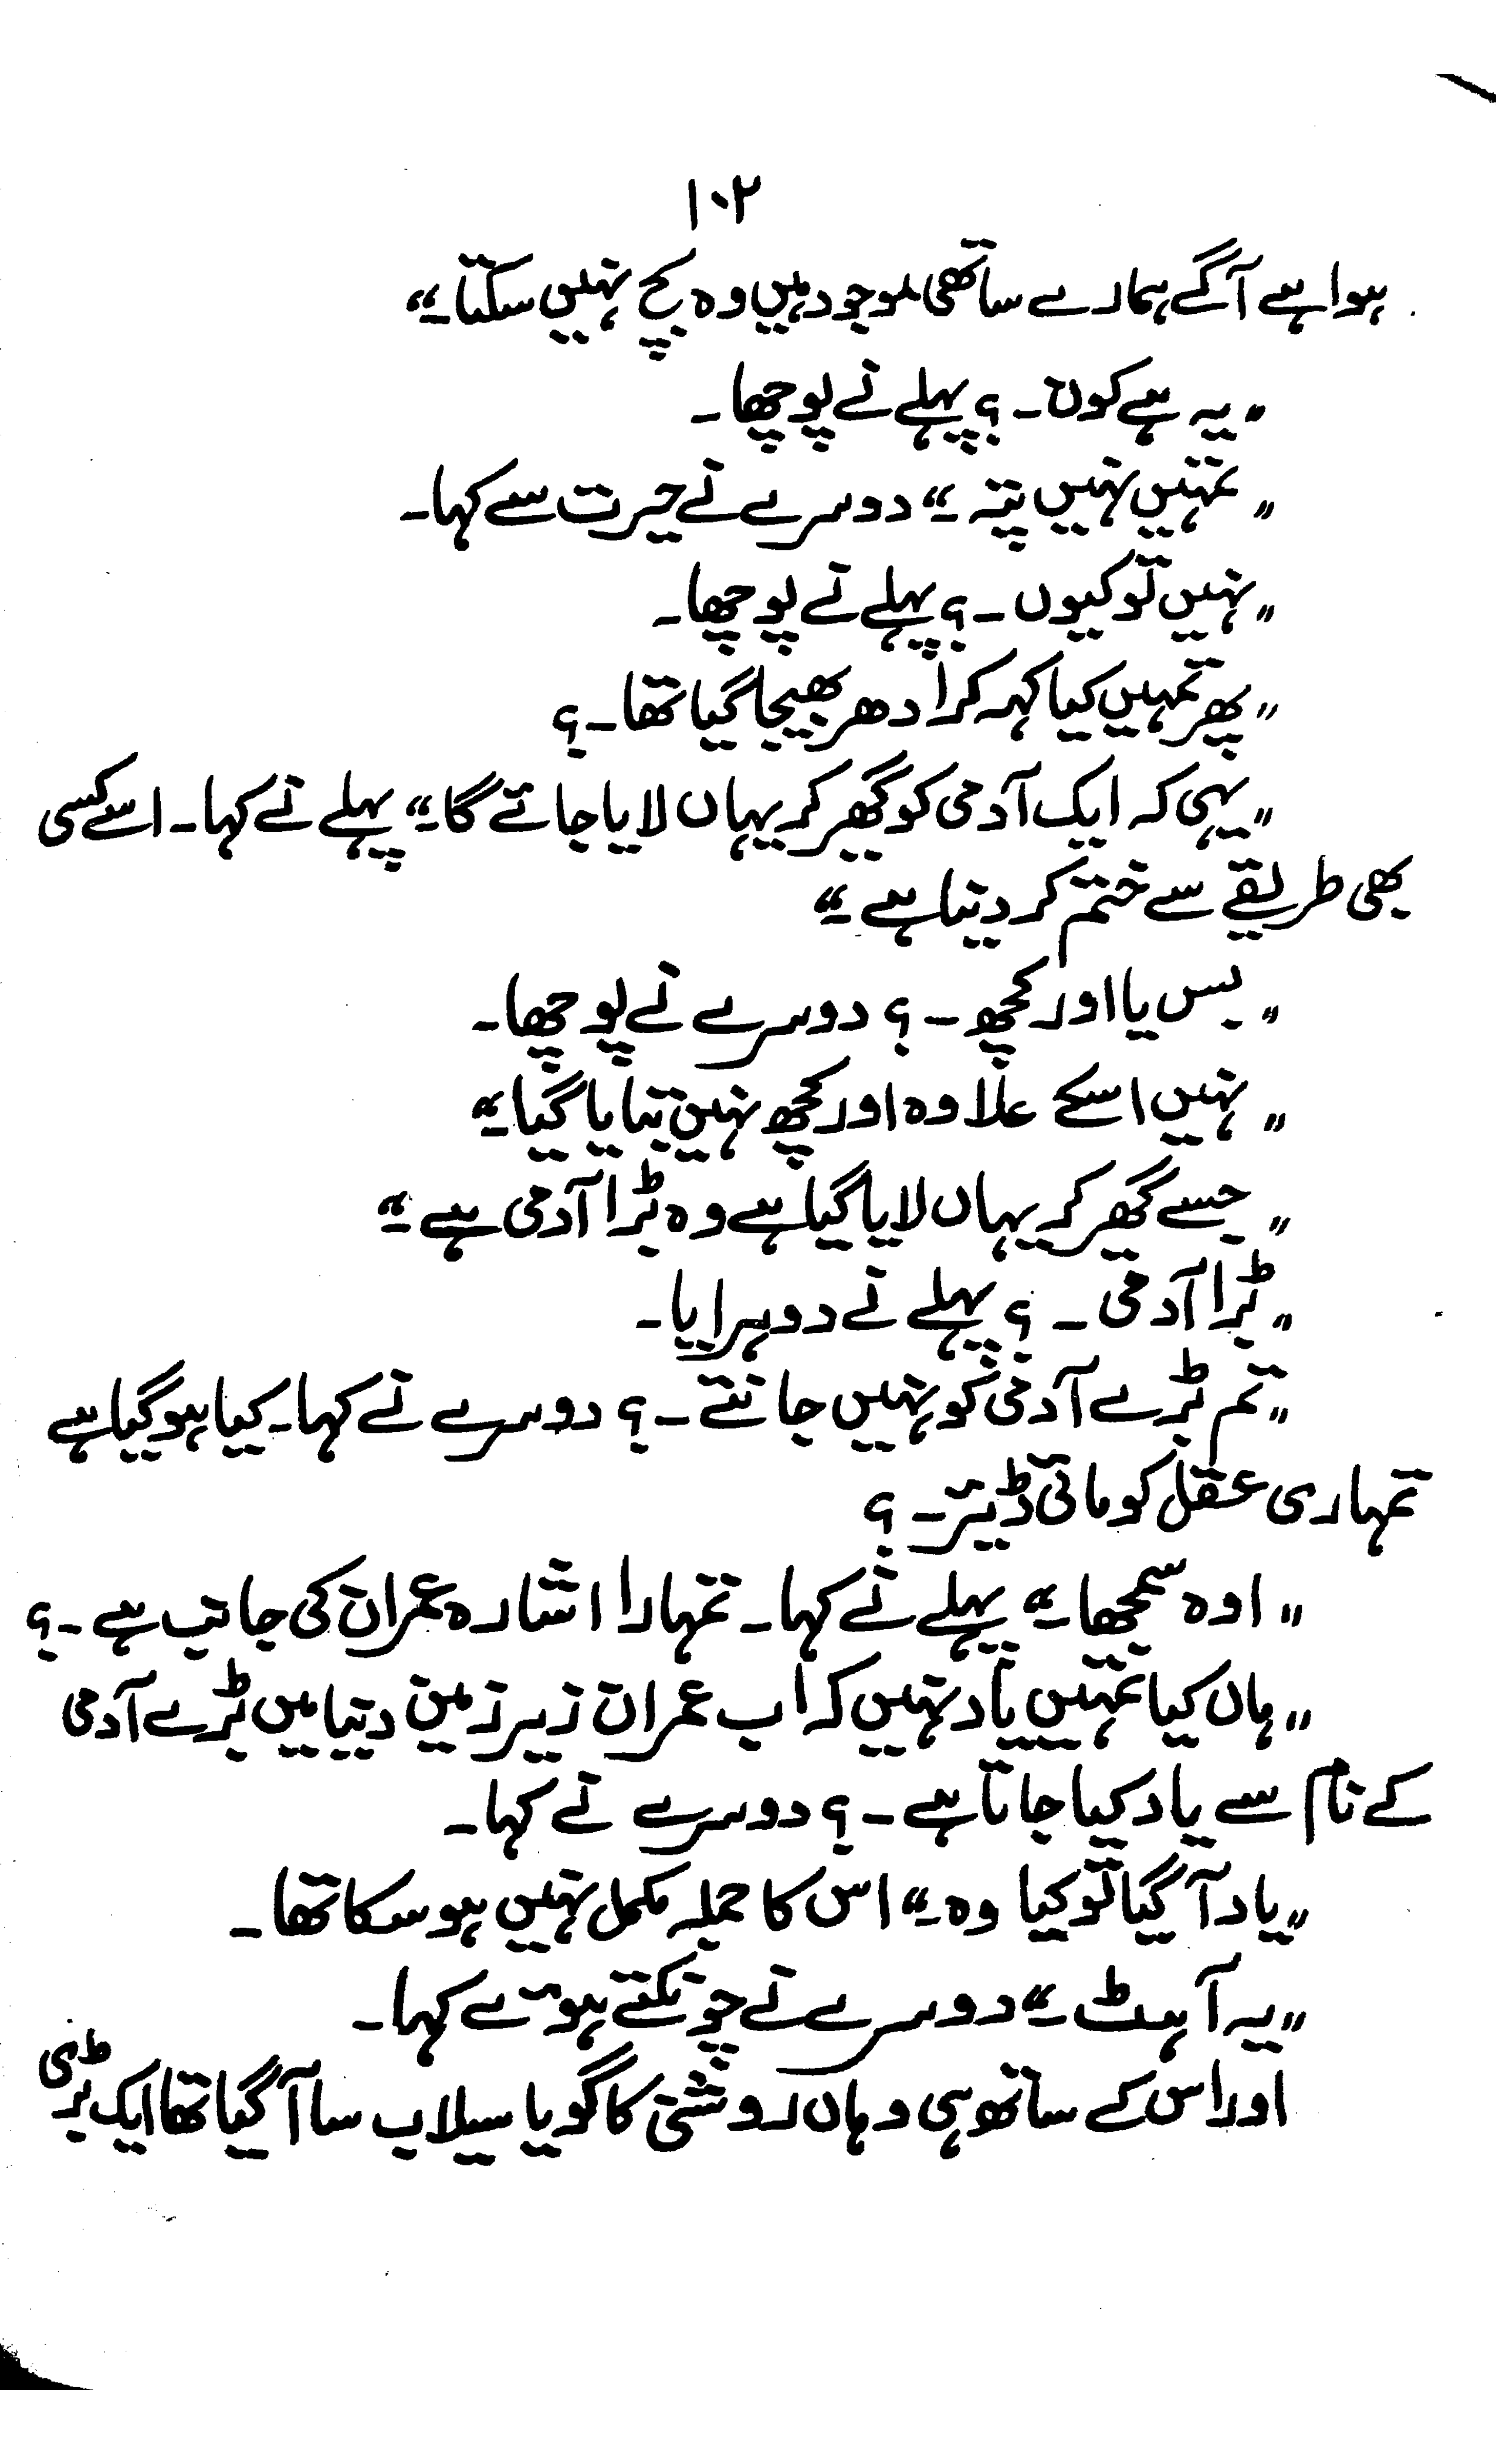 ۱۰۲
ہوا ہے آگے ہمارے ساتھی موجود ہیں وہ بچ نہیں سکتا۔“
”یہ ہے کون۔؟ پہلے نے پوچھا۔
”تمہیں نہیں پتہ۔“ دوسرے نے حیرت سے کہا۔
”نہیں تو کیوں۔؟ پہلے نے پوچھا۔
”پھر تمہیں کیا کہہ کر ادھر بھیجا گیا تھا۔؟
”یہی کہ ایک آدمی کو گھیر کر یہاں لایا جائے گا۔“ پہلے نے کہا۔ اسے کسی
بھی طریقے سے ختم کر دینا ہے۔“
”بس یا اور کچھ۔؟ دوسرے نے پوچھا۔
”نہیں اسکے علاوہ اور کچھ نہیں بتایا گیا۔“
”جسے گھیر کر یہاں لایا گیا ہے وہ بڑا آدمی ہے۔“
”بڑا آدمی۔؟ پہلے نے دوہرایا۔
”تم بڑے آدمی کو نہیں جانتے۔؟ دوسرے نے کہا۔ کیا ہو گیا ہے
تمہاری عقل کو مائی ڈیئر۔؟
”اوہ سمجھا۔“ پہلے نے کہا۔ تمہارا اشارہ عمران کی جانب ہے۔؟
”ہاں کیا تمہیں یاد نہیں کہ اب عمران زیر زمین دنیا میں بڑے آدمی
کے نام سے یاد کیا جاتا ہے۔؟ دوسرے نے کہا۔
”یاد آ گیا تو کیا وہ۔“ اس کا جملہ مکمل نہیں ہو سکا تھا۔
”یہ آہٹ۔“ دوسرے نے چونکتے ہوئے کہا۔
اور اس کے ساتھ ہی وہاں روشنی کا گویا سیلاب سا آ گیا تھا ایک بڑی